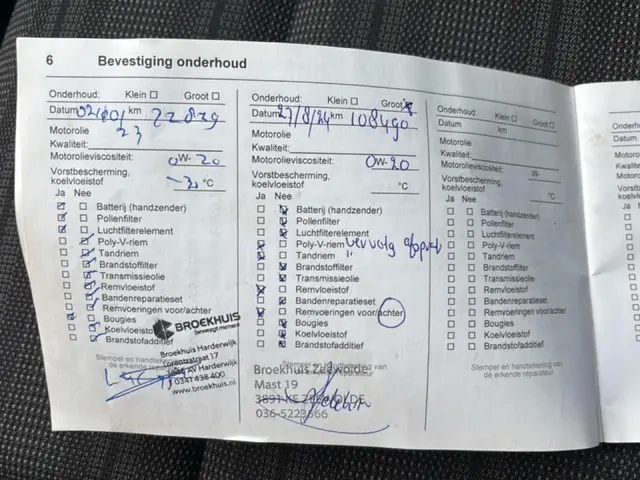 6 Bevestiging onderhoud
Onderhoud: Klein ☐ Groot ☐
Datum km
Motorolie
Kwaliteit:
Motorolieviscositeit: 0W-20
Vorstbescherming,
koelvloeistof °C
Ja Nee
☑ ☐ Batterij (handzender)
☑ ☐ Pollenfilter
☑ ☐ Luchtfilterelement
☐ ☑ Poly-V-riem
☐ ☑ Tandriem
☐ ☑ Brandstoffilter
☐ ☑ Transmissieolie
☐ ☑ Remvloeistof
☐ ☑ Bandenreparatieset
☐ ☑ Remvoeringen voor/achter
☑ ☐ Bougies
☐ ☑ Koelvloeistof
☐ ☑ Brandstofadditief
Stempel en handtekening van
de erkende reparateur
BROEKHUIS
beweegt mensen
Broekhuis Harderwijk
Lorentzstraat 17
AV Harderwijk
T 0341 438 400
www.broekhuis.nl
Onderhoud: Klein ☐ Groot ☒
Datum 27/8/24 km 108490
Motorolie
Kwaliteit:
Motorolieviscositeit: 0W-20
Vorstbescherming,
koelvloeistof °C
Ja Nee
☐ ☒ Batterij (handzender)
☐ ☒ Pollenfilter
☐ ☒ Luchtfilterelement
☒ ☐ Poly-V-riem
☒ ☐ Tandriem "
☐ ☒ Brandstoffilter
☐ ☒ Transmissieolie
☒ ☐ Remvloeistof
☐ ☒ Bandenreparatieset
☒ ☐ Remvoeringen voor/achter
☐ ☒ Bougies
☐ ☒ Koelvloeistof
☐ ☒ Brandstofadditief
Stempel en handtekening van
de erkende reparateur
Broekhuis Zeewolde
Mast 19
3891 KE ZEEWOLDE
036-5223666
Onderhoud: Klein ☐ Groot ☐
Datum km
Motorolie
Kwaliteit:
Motorolieviscositeit: W-
Vorstbescherming,
koelvloeistof °C
Ja Nee
☐ ☐ Batterij (handzender)
☐ ☐ Pollenfilter
☐ ☐ Luchtfilterelement
☐ ☐ Poly-V-riem
☐ ☐ Tandriem
☐ ☐ Brandstoffilter
☐ ☐ Transmissieolie
☐ ☐ Remvloeistof
☐ ☐ Bandenreparatieset
☐ ☐ Remvoeringen voor/achter
☐ ☐ Bougies
☐ ☐ Koelvloeistof
☐ ☐ Brandstofadditief
Stempel en handtekening van
de erkende reparateur